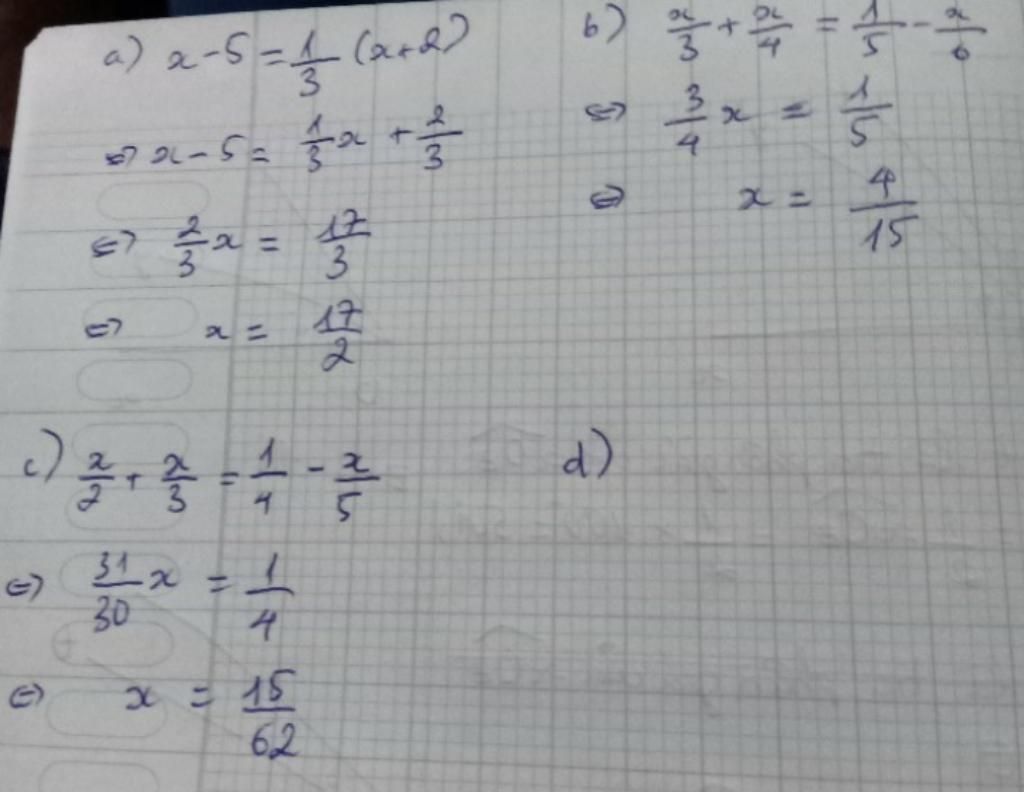 a) x - 5 = 1/3 (x + 2)
⇔ x - 5 = 1/3 x + 2/3
⇔ 2/3 x = 17/3
⇔ x = 17/2
b) x/3 + x/4 = 1/5 - x/6
⇔ 3/4 x = 1/5
⇔ x = 4/15
c) x/2 + x/3 = 1/4 - x/5
⇔ 31/30 x = 1/4
⇔ x = 15/62
d)